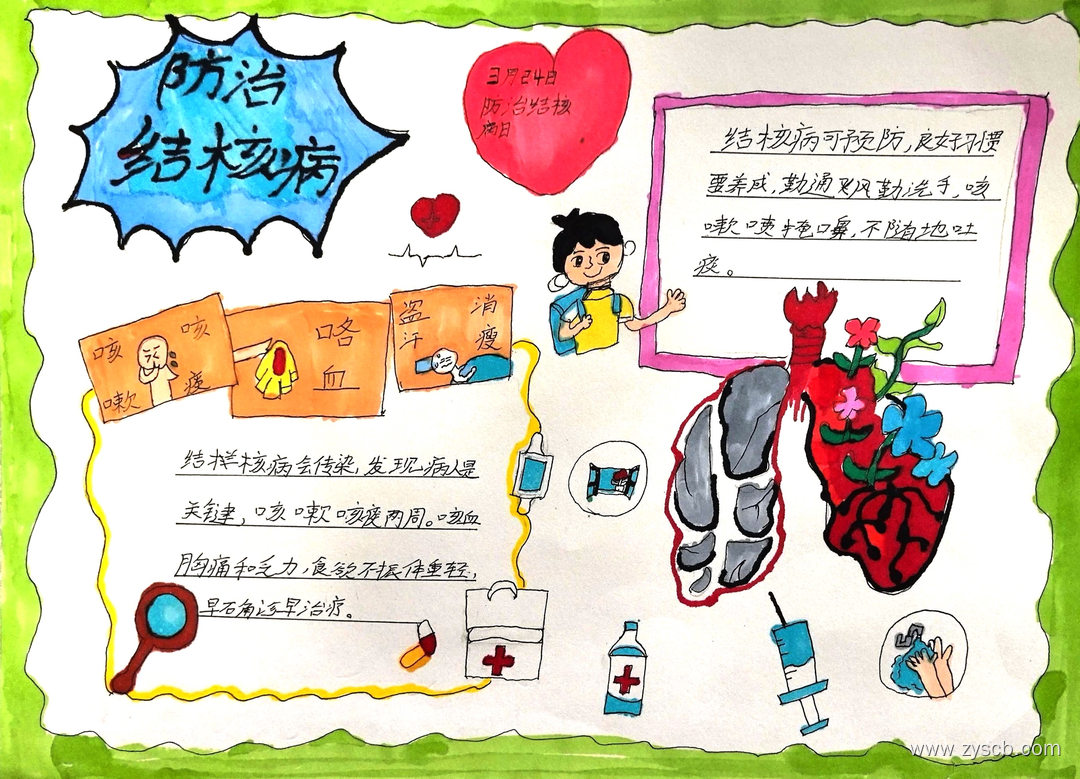 防治
结核病
三月24日
防治结核
病日
结核病可预防,良好习惯
要养成,勤通风勤洗手,咳
嗽喷嚏掩口鼻,不随地吐
痰。
咳 咳
嗽 痰
咯
血
盗 消
汗 瘦
结样核病会传染,发现病人是
关键,咳嗽咳痰两周。咳血
胸痛和乏力,食欲不振体重轻,
早石角诊早治疗。
www.zyscb.com